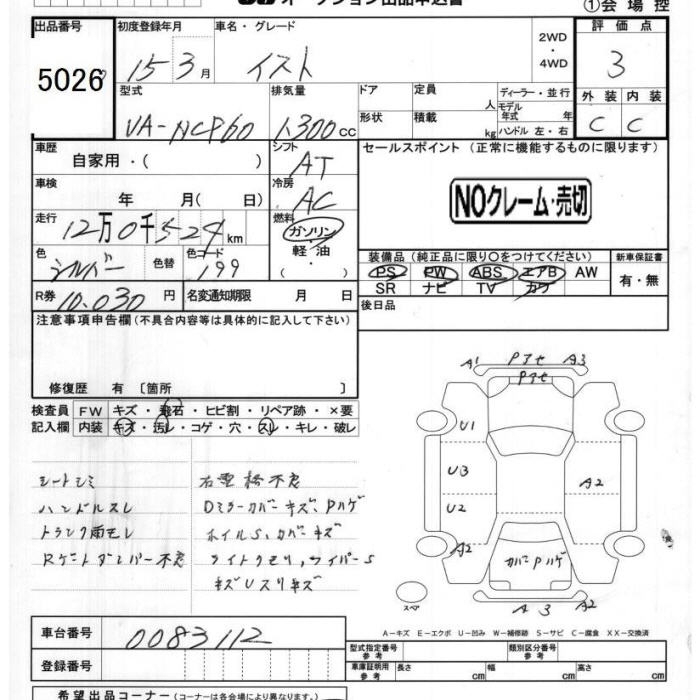 オークション出品申込書
①会場控
出品番号
5026
初度登録年月
15 3 月
車名・グレード
イスト
2WD
・
4WD
評価点
3
型式
UA-NCP60
排気量
1.300 cc
ドア
定員
人
ディーラー・並行
モデル年式 年
形状
積載
kg
ハンドル 左・右
外装 内装
C C
車歴
自家用・( )
シフト
AT
セールスポイント (正常に機能するものに限ります)
NOクレーム・売切
車検
年 月( 日)
冷房
AC
走行
12万0千524 km
燃料
ガソリン
軽油
・( )
色
シルバー
色替
色コード
199
装備品 (純正品に限り○をつけてください)
PS PW ABS エアB AW
SR ナビ TV カワ
新車保証書
有・無
R券
10.030 円
名変通知期限 月 日
後日品
注意事項申告欄 (不具合内容等は具体的に記入して下さい)
修復歴 有 〔箇所 〕
検査員
記入欄
FW キズ・飛石・ヒビ割・リペア跡・×要
内装 キズ・汚レ・コゲ・穴・スレ・キレ・破レ
シートシミ
ハンドルスレ
トランク雨モレ
Rゲートダンパー不良
Dミラーカバーキズ、Pハゲ
ホイルS、カバーキズ
ライトクモリ、ワイパーS
キズUスリキズ
A1 Pアセ A3
Pアセ
U1
U3
U2
A2
A2
カバーPハゲ
A3 A2
スペア
A−キズ E−エクボ U−凹み W−補修跡 S−サビ C−腐食 XX−交換済
車台番号
0083112
登録番号
型式指定番号
参考
類別区分番号
参考
車庫証明用
参考
長さ cm 幅 cm 高さ cm
希望出品コーナー (コーナーは各会場により異なります。)